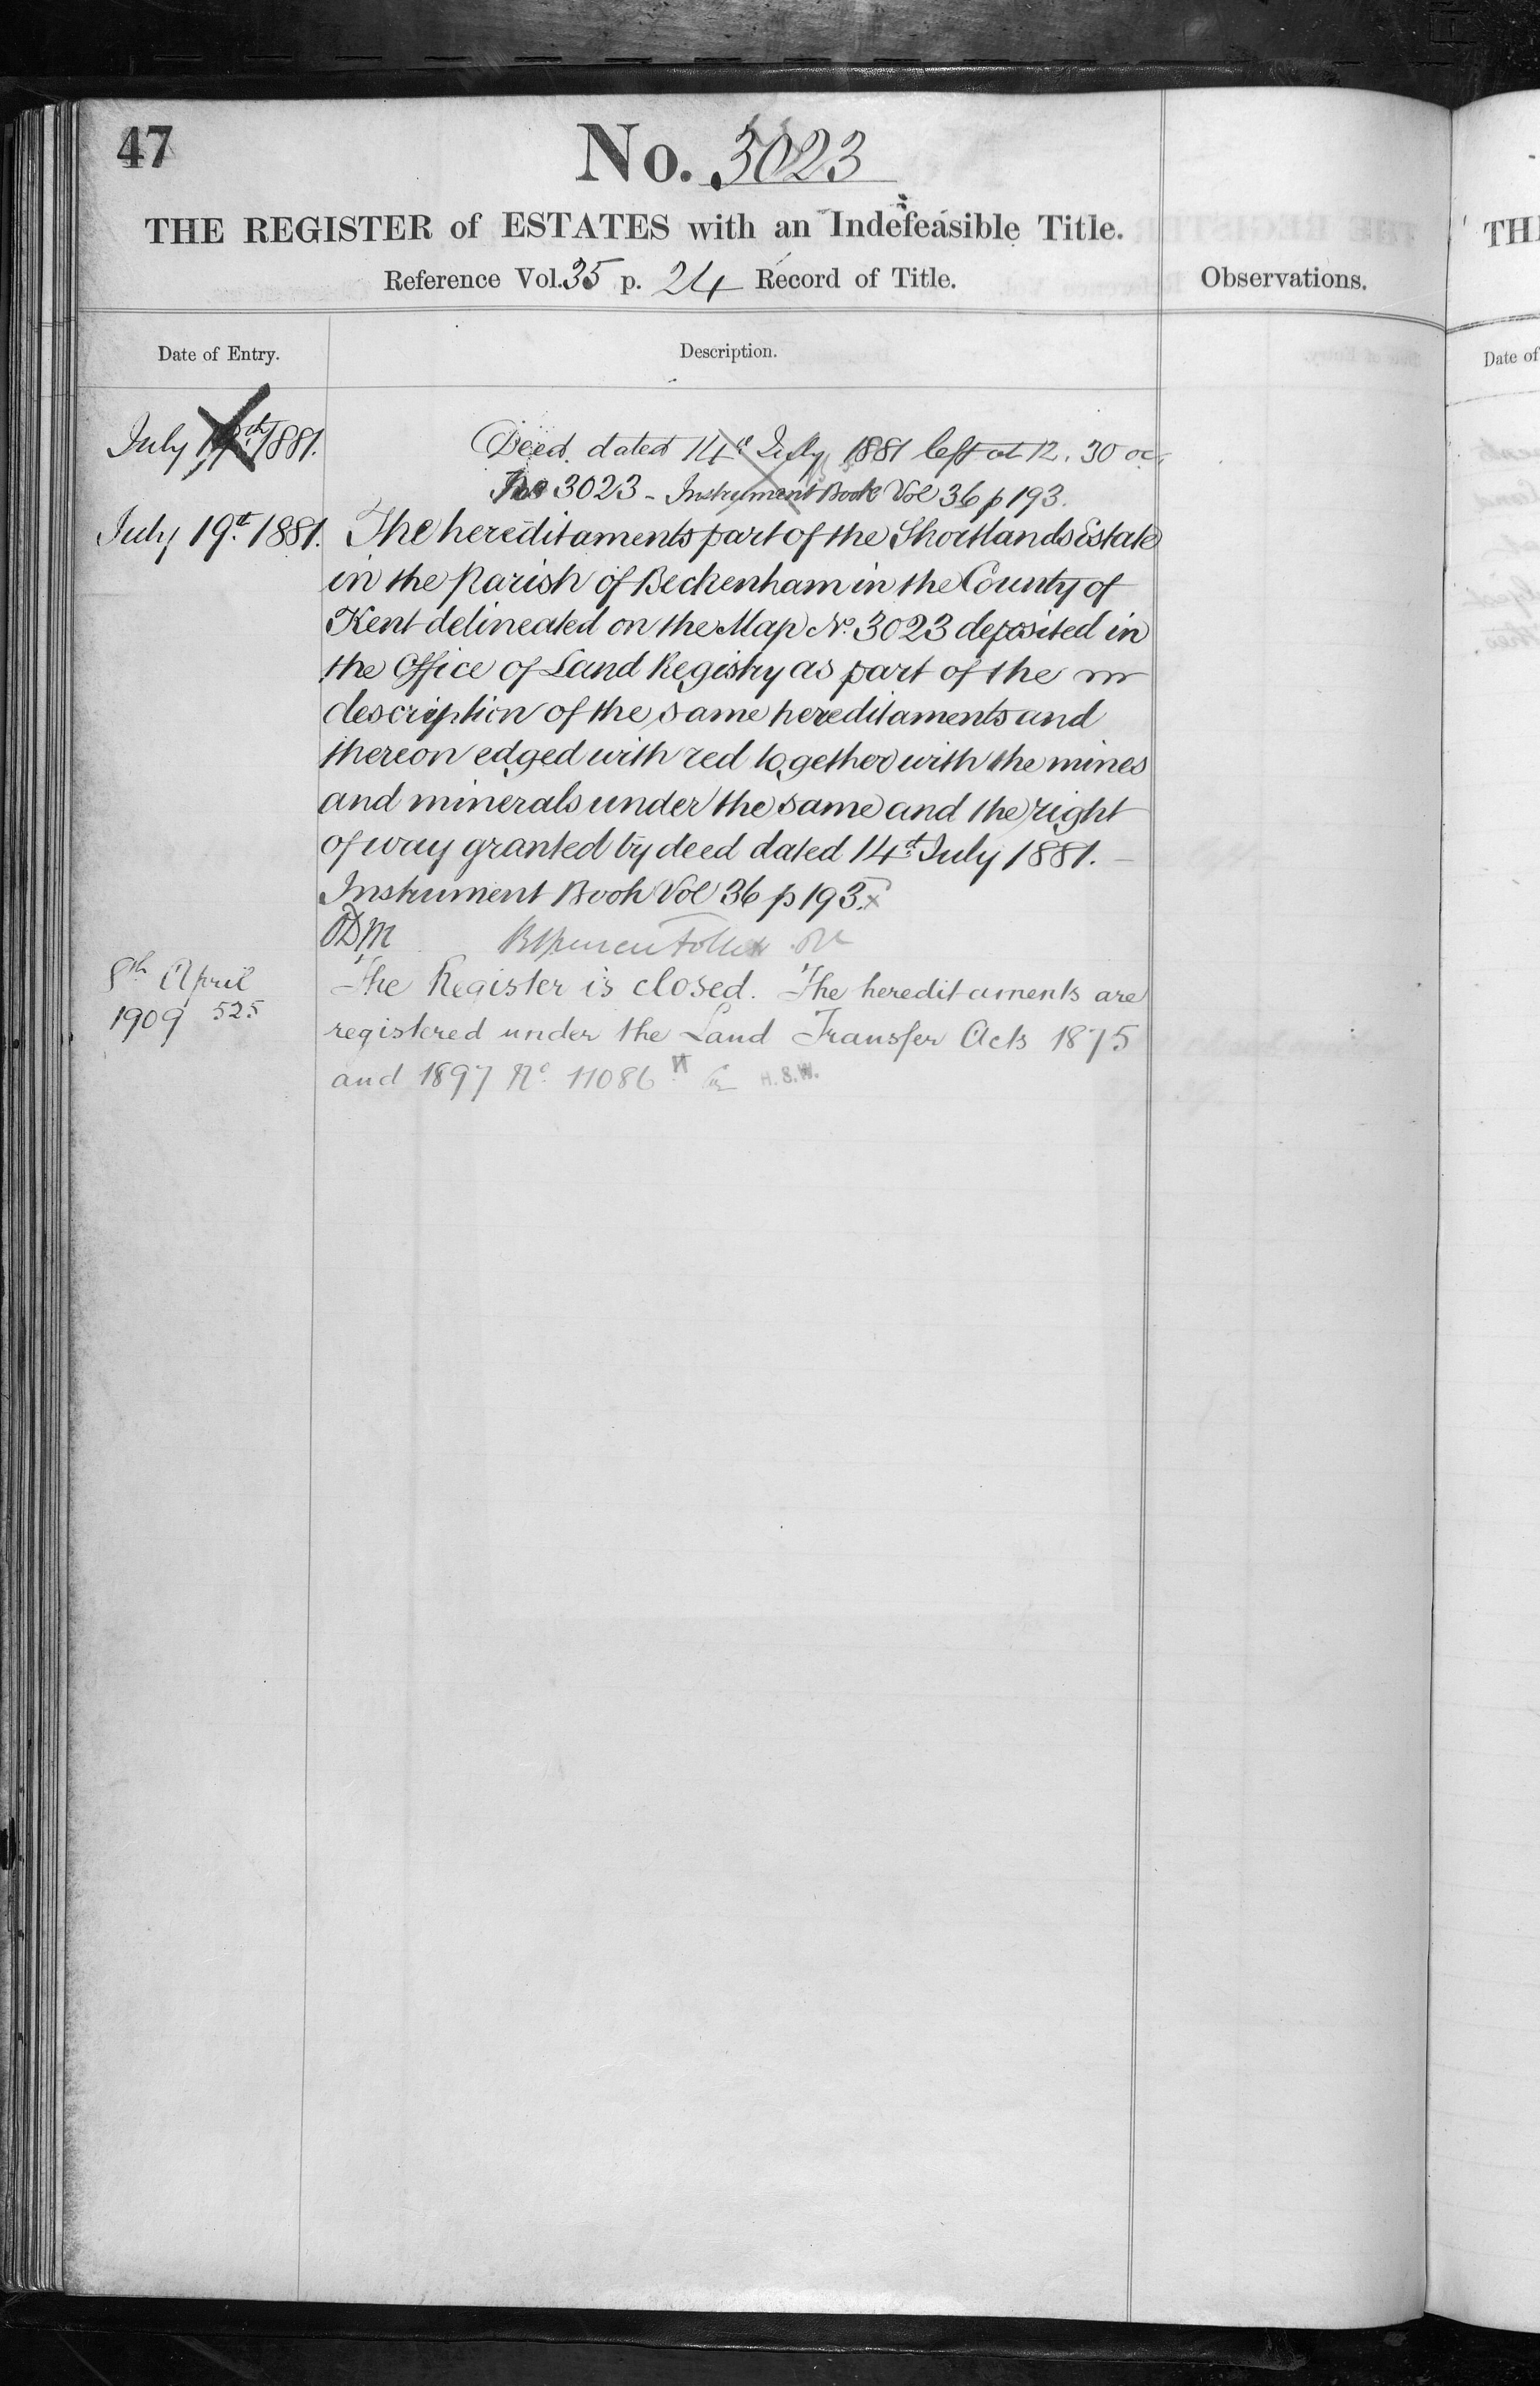 47
No. 3023
THE REGISTER of ESTATES with an Indefeasible Title.
Reference Vol. 35 p. 24 Record of Title.
Observations.
Date of Entry.
Description.
July 19th 1881.
Deed dated 14th July 1881 left at 12.30 oc.
No 3023 - Instrument Book Vol 36 p 193.
July 19th 1881.
The hereditaments part of the Shortlands Estate
in the Parish of Beckenham in the County of
Kent delineated on the Map No. 3023 deposited in
the Office of Land Registry as part of the
description of the same hereditaments and
thereon edged with red together with the mines
and minerals under the same and the right
of way granted by deed dated 14th July 1881. -
Instrument Book Vol 36 p 193. x
8th April
1909 525
The Register is closed. The hereditaments are
registered under the Land Transfer Acts 1875
and 1897 No 11086 H.S.W.
TH
Date of